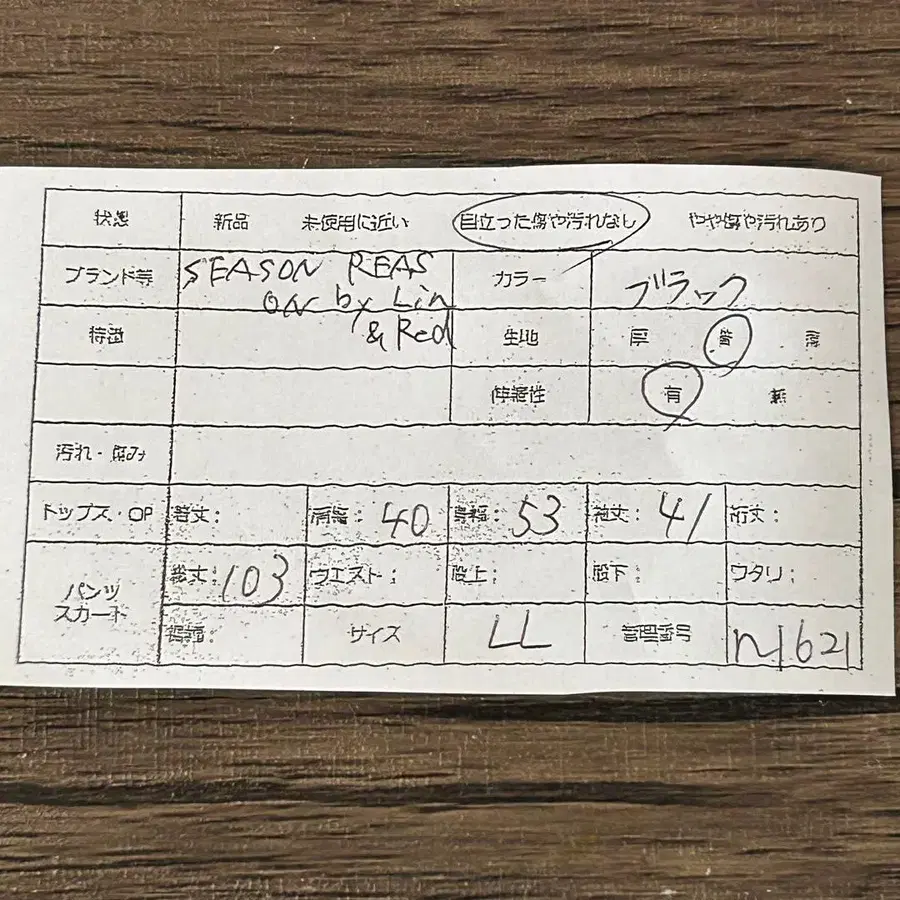 状態 新品 未使用に近い 目立った傷や汚れなし やや傷や汚れあり
ブランド等 SEASON REAS
ON by Lin
& Red
カラー ブラック
特徴 生地 厚 普 薄
伸縮性 有 無
汚れ・傷み
トップス・OP 着丈: 肩幅: 40 身幅: 53 袖丈: 41 裄丈:
パンツ
スカート
総丈: 103 ウエスト: 股上: 股下: ワタリ:
裾幅: サイズ LL 管理番号 n1621